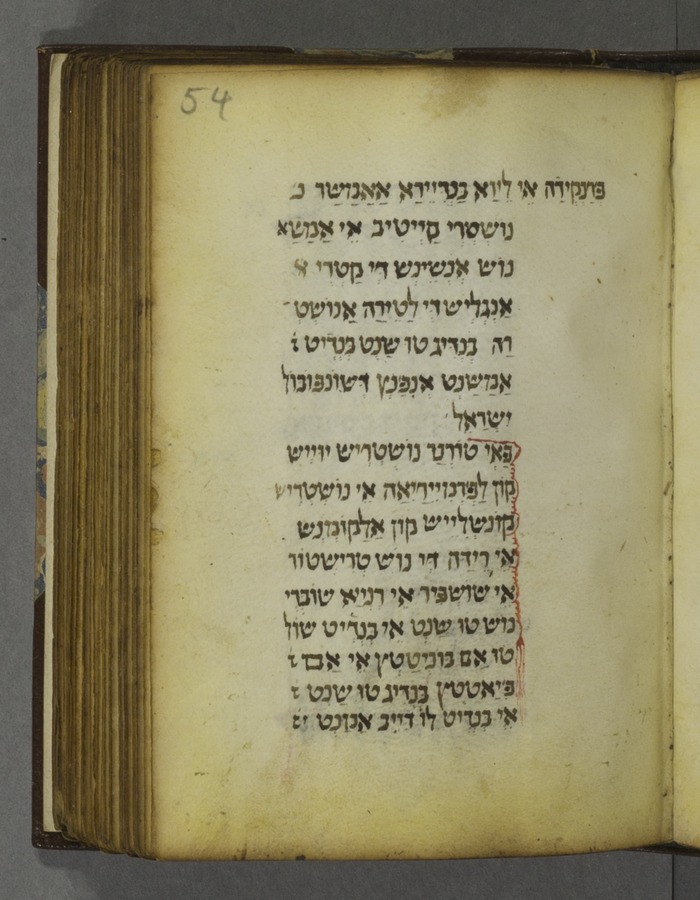 54
פרנקידה אי ליוא בנדיירא אאמשר נ
נושטרי קייטיב אי אמשא
נוש אנשינש די קטרי א
אנגליש די לטירה אנושט
רה בנדיג טו שנט בנדיט
אמשנט אנפנץ דשונפובול
ישראל
פאי טורנר נושטריש יוייש
קון לפרנוייריאה אי נושטריש
קונשלייש קון אלקומנש
אי רידה די נוש טרישטור
אי שושפיר אי רניא שוברי
נוש טו שנט אי בנדיט שול
טו אם בוניטטץ אי אבד
פיאטטץ בנדיג טו שנט
אי בנדיט לו דייב אמנט ש